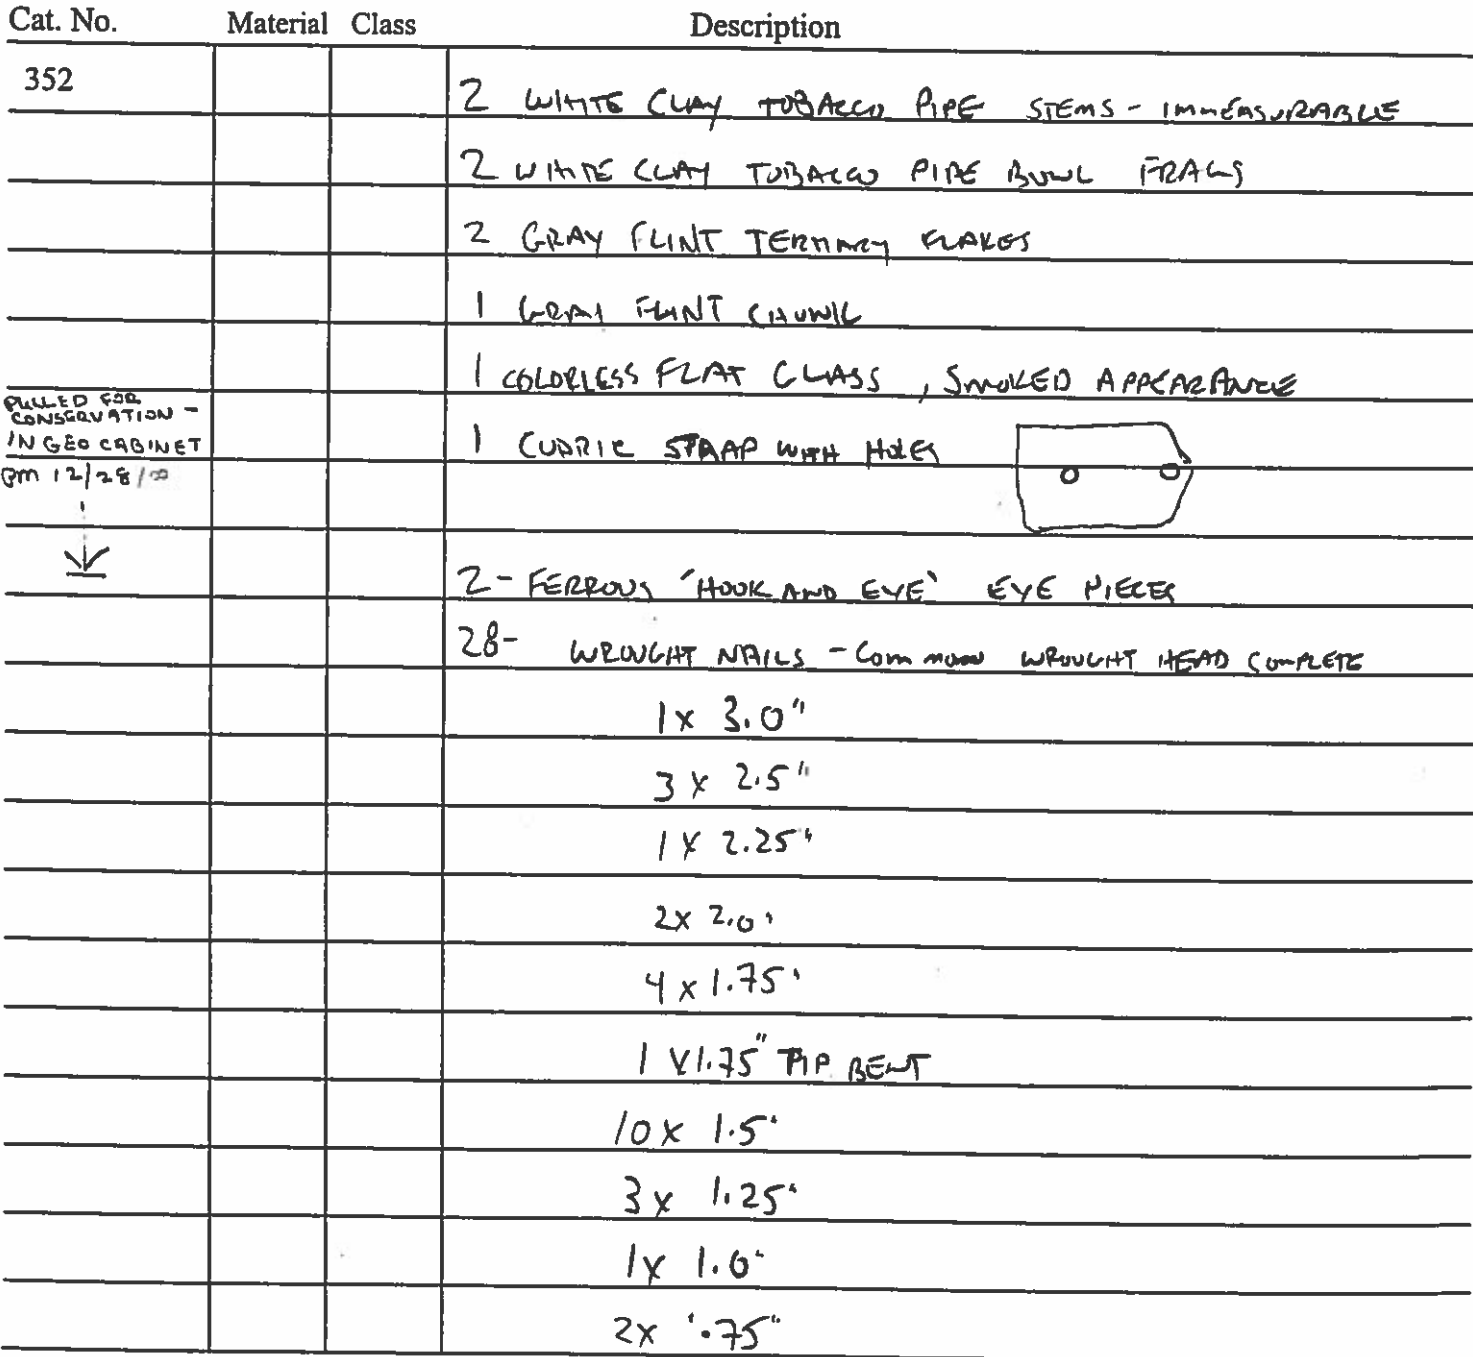 Cat. No. Material Class Description
352
2 WHITE CLAY TOBACCO PIPE STEMS - IMMEASURABLE
2 WHITE CLAY TOBACCO PIPE BOWL FRAGS
2 GRAY FLINT TERTIARY FLAKES
1 GRAY FLINT CHUNK
1 COLORLESS FLAT GLASS, SMOKED APPEARANCE
PULLED FOR
CONSERVATION -
IN GEO CABINET
12/28/00
1 CUPRIC STRAP WITH HOLES
2 - FERROUS 'HOOK AND EYE' EYE PIECES
28 - WROUGHT NAILS - COMMON WROUGHT HEAD COMPLETE
1 x 3.0"
3 x 2.5"
1 x 2.25"
2 x 2.0"
4 x 1.75"
1 x 1.75" TIP BENT
10 x 1.5"
3 x 1.25"
1 x 1.0"
2 x .75"